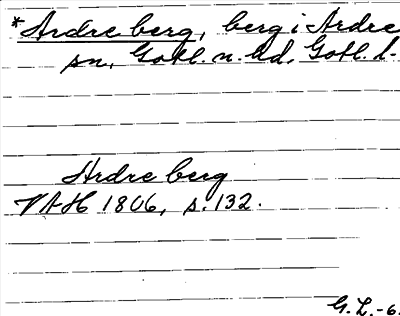 *Ardre berg, berg i Ardre
sn, Gotl. n. hd, Gotl. l.
Ardre berg
VAH 1806, s. 132.
G. L. -6.